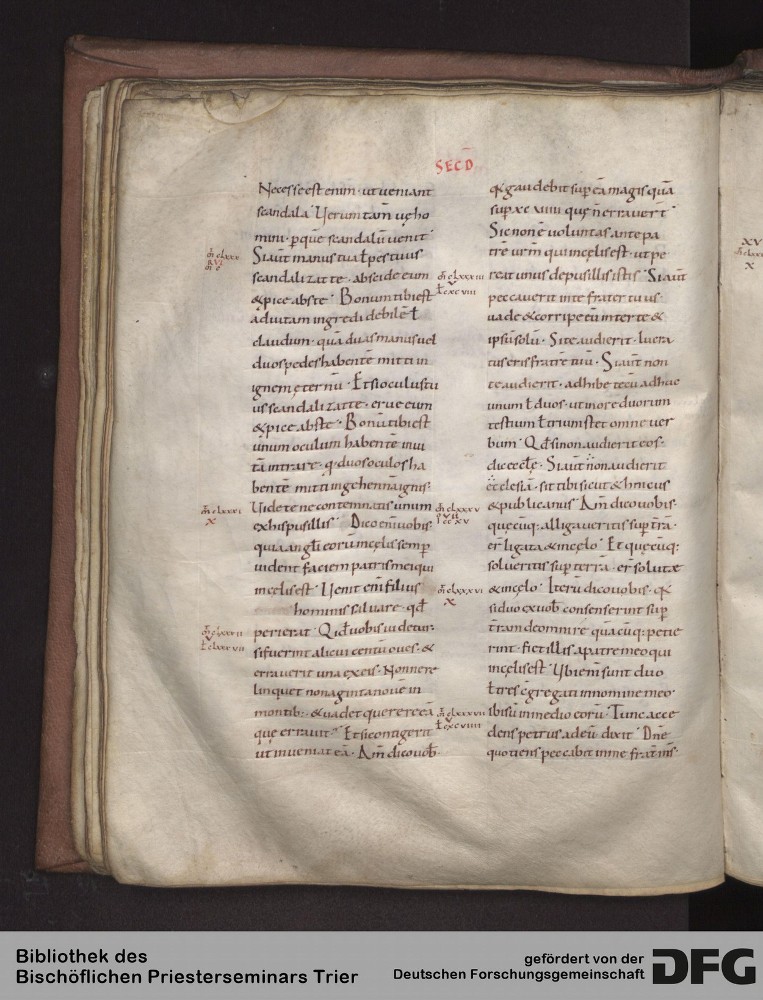 SECD̄
Necesse est enim · ut veniant
scandala · Uerum tam̄ uę ho
mini · p̱ que scandalū uenit ·
Siaut̄ manus tua ł pes tuus
scandalizat te · abscide eum
& ꝓice abs te · Bonum tibi est
ad uitam ingredi debilē ł
claudum · quā duas manus uel
duos pedes habentē mitti in
ignem ęternū · Et si oculus tu
us scandalizat te · erue eum
& ꝓice abs te · Bonū tibi est
unum oculum habentē in ui
tā intrare · q̄ duos oculos ha
bentē mitti in gehennā ignis ·
Uidete ne contemnatis unum
ex his pusillis · Dico enī uobis ·
quia angłi eorū in cęlis semp̱
uident faciem patris mei qui
in cęlis est · Uenit enī filius
hominis saluare · qđ
perierat · Quid uobis uidetur ·
si fuerint alicui centū oues · &
errauerit una ex eis · Nonne re
linquet nonaginta nouē in
montib: · & uadet querere eā
quę errauit · Et si contigerit
ut inueniat eā · Am̄ dico uob̄
q& gaudebit sup̱ eā magis quā
sup̱ xc uiiii quę n̄ errauer̄t ·
Sic non ē uoluntas ante pa
trē ur̄m qui in cęlis est · ut pe
reat unus de pusillis istis · Siaut̄
peccauerit in te frater tuus ·
uade & corripe eū inter te &
ipsū solū · Si te audierit · lucra
tus eris fratrē tuū · Siaut̄ non
te audierit · adhibe tecū adhuc
unum ł duos · ut in ore duorum
testium ł trium stet omne uer
bum · Qđ si non audierit eos ·
dic eccłę · Siaut̄ non audierit
ęcclesiā · sit tibi sicut & hnicus
& publicanus · Am̄ dico uobis ·
quęcūq: alligaueritis sup̱ t̄ra ·
er̄ ligata & in cęlo · Et quęcūq:
solueritis sup̱ terrā · er̄ soluta
& in cęlo · Iterū dico uobis · q&
si duo ex uob̄ consenserint sup̱
t̄ram de omni re quācūq: petie
rint · fiet illis a patre meo qui
in cęlis est · Ubi enī sunt duo
ł tres c̄gregati in nomine meo ·
ibi sū in medio eorū · Tunc acce
dens petrus ad eū dixit · Dn̄e
quotiens peccabit in me frat̄ m̄s ·
clxxxi
X
clxxxii
V
clxxxvii
clxxxiii
V
cxcviii
clxxxv
VII
ccxv
clxxxvi
X
clxxxvii
V
cxcviiii
XV
X
Bibliothek des
Bischöflichen Priesterseminars Trier
gefördert von der
Deutschen Forschungsgemeinschaft
DFG